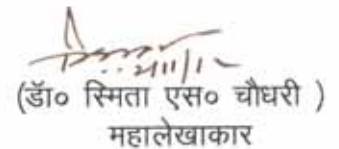 (डॅा० स्मिता एस० चौधरी )
महालेखाकार